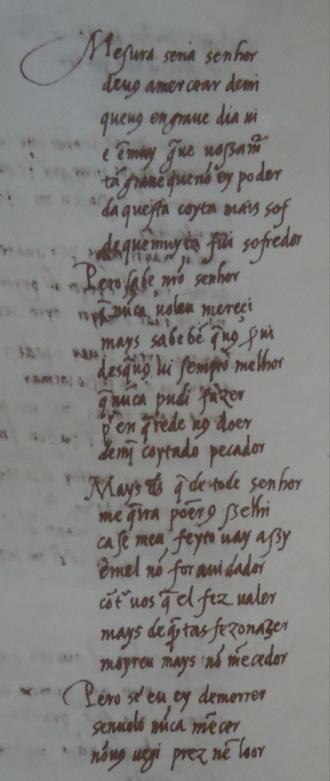 Mesura seria senhor
deuos amercear demi
queuos engraue dia ui
e ẽmuy g̃ue uossam̃
tã graue que nõ ey poder
daquesta coyta mais sof
de quẽ muyta fui sofredor
Pero sabe nr̃o senhor
q̃ nũca uoleu mereçi
mays sabe bẽ q̃uos
desq̃uos ui sempro melhor
q̃ nũca pudi fazer
p̃ en q̃rede uos doer
demj̃ coytado pecador
Mays d̃s q̃ de tode senhor
me q̃ira põer
ca se meu feyto uay assy
ẽmel nõ for aiudador
cõt̃ uos q̃ el fez ualer
mays de q̃ntas fezo naẓer
moyreu mays nõ m̃ecedor
Pero se eu ey demorrer
senuolo nũca m̃ecer
nõuos ueio prez nẽ loor